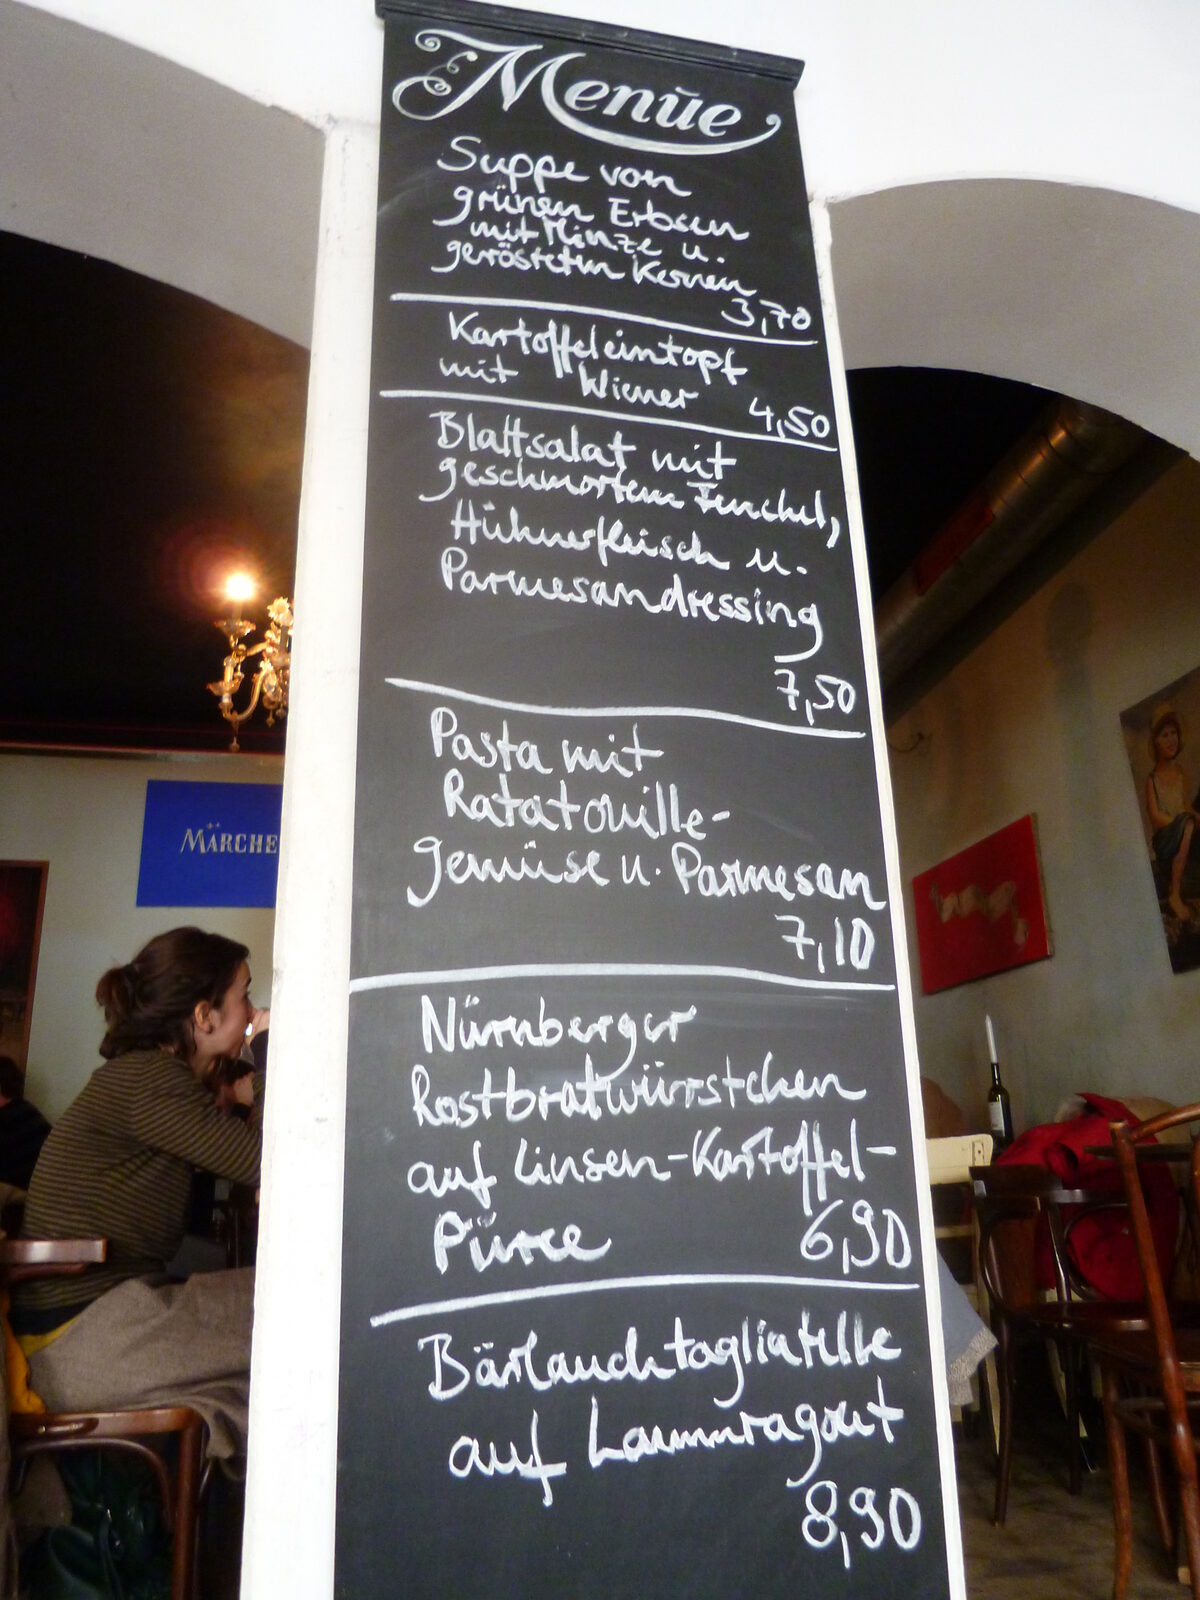 Menüe
Suppe von
grünen Erbsen
mit Minze u.
gerösteten Kernen
3,70
Kartoffeleintopf
mit Wiener
4,50
Blattsalat mit
geschmortem Fenchel,
Hühnerfleisch u.
Parmesandressing
7,50
Pasta mit
Ratatouille-
gemüse u. Parmesan
7,10
Nürnberger
Rostbratwürstchen
auf Linsen-Kartoffel-
Püree 6,90
Bärlauchtagliatelle
auf Lammragout
8,90
MÄRCHE